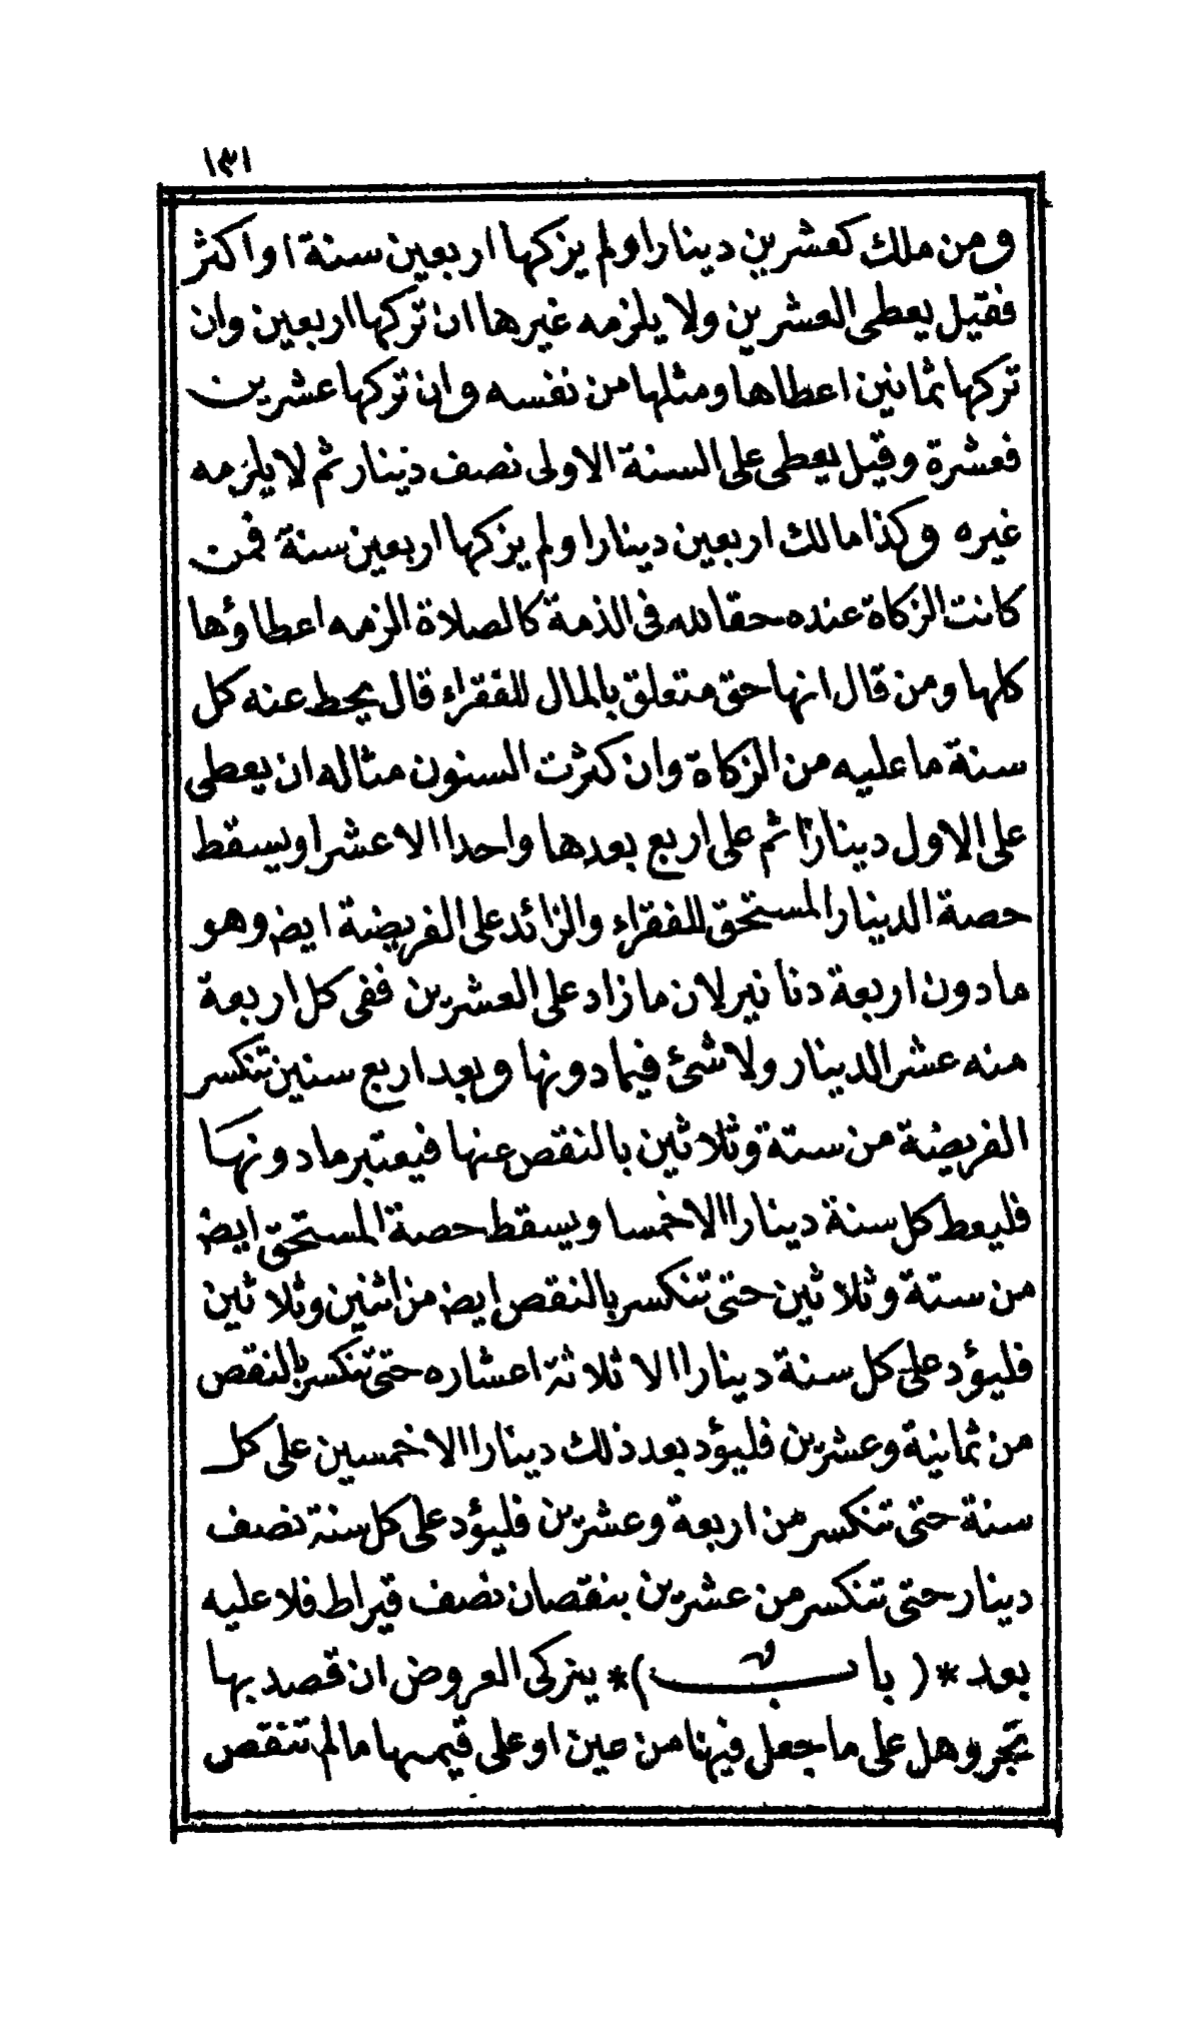 ١٣١
ومن ملك كعشرين دينارا ولم يزكها اربعين سنة او اكثر
فقيل يعطى العشرين ولا يلزمه غيرها ان تركها اربعين وان
تركها ثمانين اعطاها ومثلها من نفسه وان تركها عشرين
فعشرة وقيل يعطى على السنة الاولى نصف دينار ثم لا يلزمه
غيره وكذا مالك اربعين دينارا ولم يزكها اربعين سنة فمن
كانت الزكاة عنده حقا لله فى الذمة كالصلاة الزمه اعطاؤها
كلها ومن قال انها حق متعلق بالمال للفقراء قال يحط عنه كل
سنة ما عليه من الزكاة وان كثرت السنون مثاله ان يعطى
على الاول دينارا ثم على اربع بعدها واحدا الا عشرا ويسقط
حصة الدينار المستحق للفقراء والزائد على الفريضة ايض وهو
ما دون اربعة دنانير لان ما زاد على العشرين ففى كل اربعة
منه عشر الدينار ولا شئ فيما دونها وبعد اربع سنين تنكسر
الفريضة من ستة وثلاثين بالنقص عنها فيعتبر ما دونها
فليعط كل سنة دينارا الا خمسا ويسقط حصة المستحق ايض
من ستة وثلاثين حتى تنكسر بالنقص ايض من اثنين وثلاثين
فليؤد على كل سنة دينارا الا ثلاثة اعشاره حتى تنكسر بالنقص
من ثمانية وعشرين فليؤد بعد ذلك دينارا الا خمسين على كل
سنة حتى تنكسر من اربعة وعشرين فليؤد على كل سنة نصف
دينار حتى تنكسر من عشرين بنقصان نصف قيراط فلا عليه
بعد *( باب )* يزكى العروض ان قصد بها
تجر وهل على ما جعل فيها من عين او على قيمها ما لم تنقص